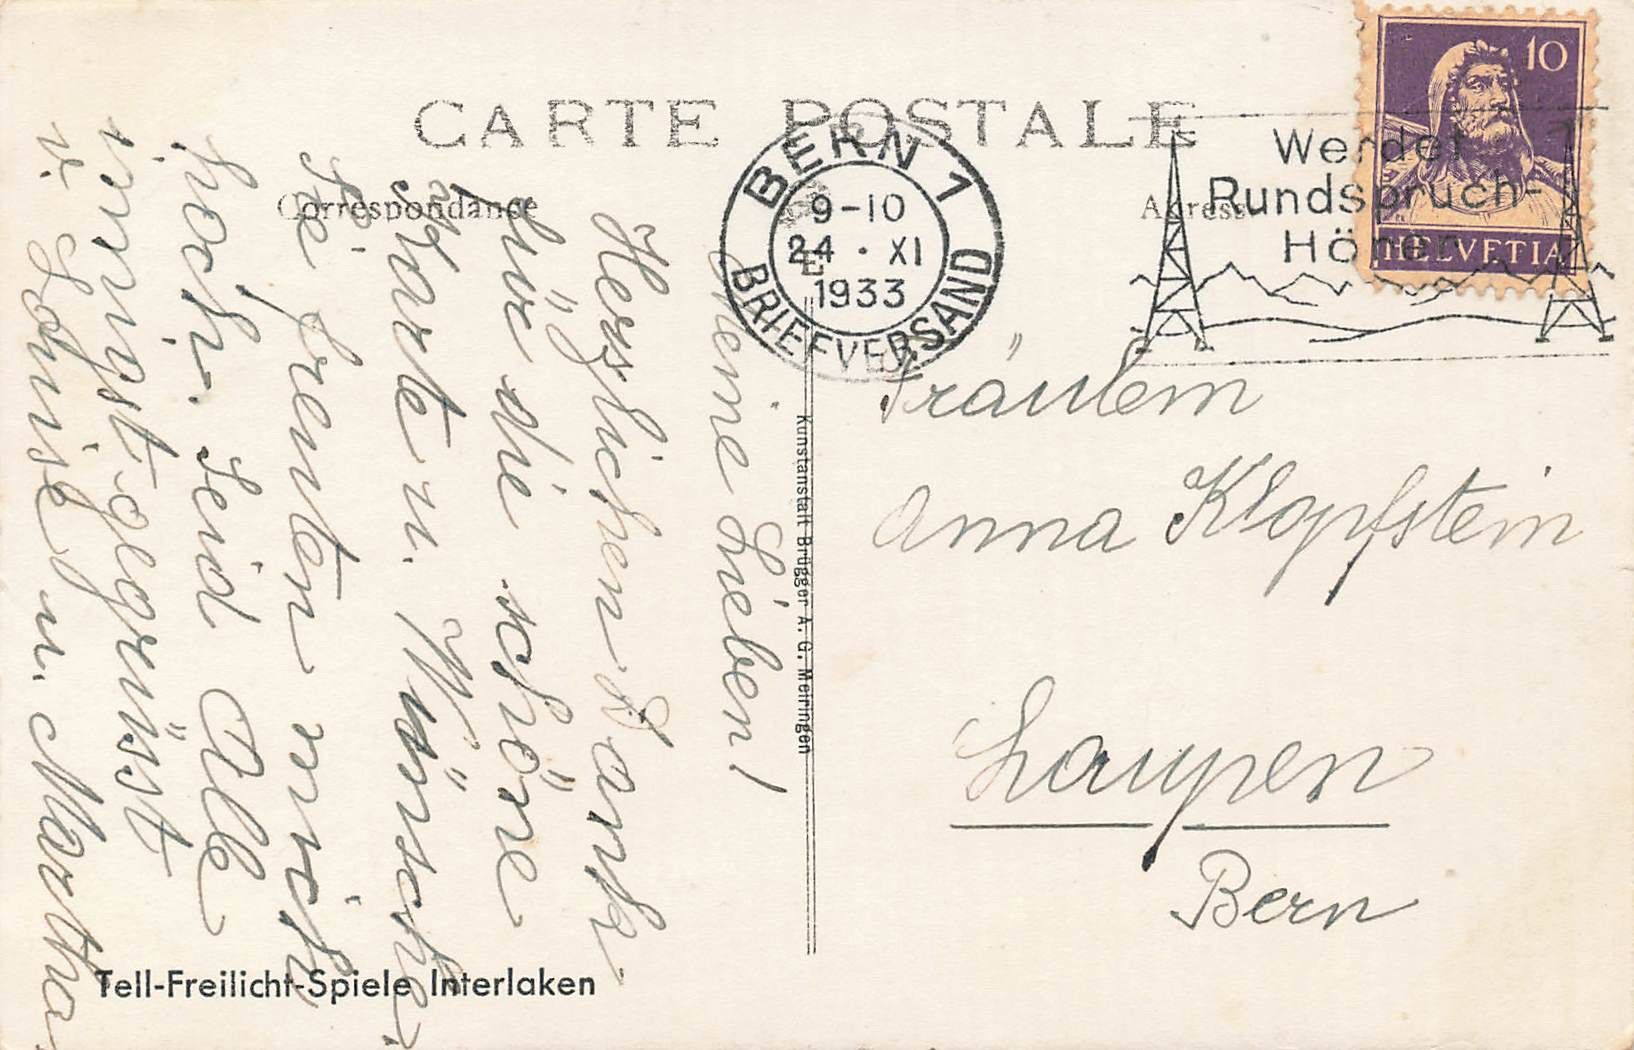 CARTE POSTALE
Correspondance
Adresse
BERN 1
9-10
24 · XI
1933
BRIEFVERSAND
Werdet
Rundspruch-
Hörer
10
HELVETIA
Meine Lieben!
Herzlichen Dank
für die schöne
Karte u. Wünsche.
Sie freuten mich
hoch. Seid Alle
innigst gegrüsst
v. Louise u. Martha
Kunstanstalt Brügger A. G. Meiringen
Fräulein
Anna Klopfstein
Laupen
Bern
Tell-Freilicht-Spiele Interlaken